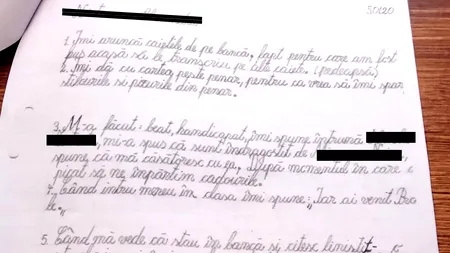 30.11.20
1. Îmi aruncă caietele de pe bancă, fapt pentru care am fost
pus acasă să le transcriu pe alte caiete. (pedeapsă)
2. Îmi dă cu cartea peste penar, pentru ca vrea să îmi spar
stilourile si pixurile din penar.
3. M-a făcut: beat, handicapat, îmi spune întruna
mi-a spus că sunt îndrăgostit de
spune că mă căsătoresc cu ea. După momentul în care
să ne împărțim cadourile.
4. Când intru mereu în clasa îmi spune: „Iar ai venit
le."
5. Când mă vede că stau în bancă si citesc linistit